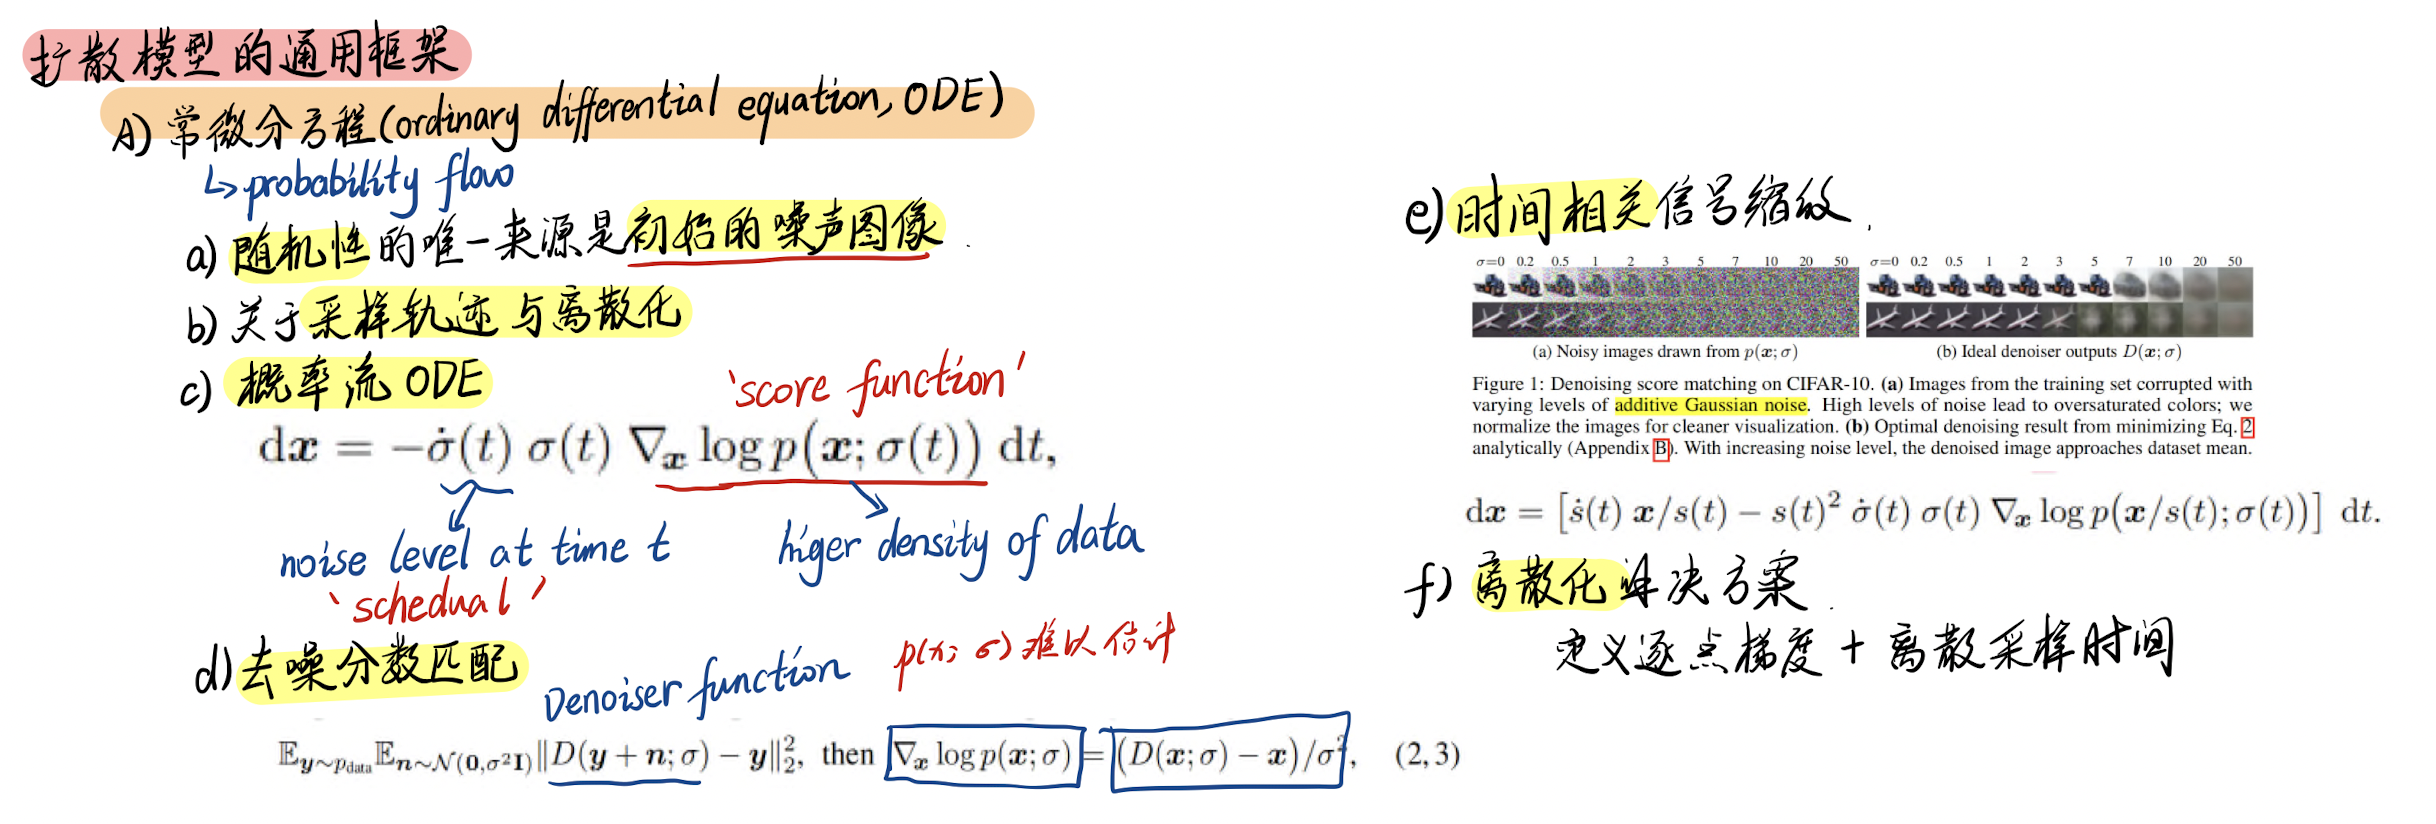 扩散模型的通用框架
A) 常微分方程(ordinary differential equation, ODE)
↳ probability flow
a) 随机性的唯一来源是初始的噪声图像.
b) 关于采样轨迹与离散化
c) 概率流 ODE
'score function'
dx = −σ̇(t) σ(t) ∇ₓ log p(x; σ(t)) dt,
noise level at time t
higer density of data
'schedual'
d) 去噪分数匹配
Denoiser function
p(x; σ) 难以估计
𝔼_{y∼p_data} 𝔼_{n∼𝒩(0,σ²I)} ‖D(y + n; σ) − y‖²₂, then ∇ₓ log p(x; σ) = (D(x; σ) − x)/σ², (2, 3)
e) 时间相关信号缩放.
σ=0 0.2 0.5 1 2 3 5 7 10 20 50
σ=0 0.2 0.5 1 2 3 5 7 10 20 50
(a) Noisy images drawn from p(x; σ)
(b) Ideal denoiser outputs D(x; σ)
Figure 1: Denoising score matching on CIFAR-10. (a) Images from the training set corrupted with
varying levels of additive Gaussian noise. High levels of noise lead to oversaturated colors; we
normalize the images for cleaner visualization. (b) Optimal denoising result from minimizing Eq. 2
analytically (Appendix B). With increasing noise level, the denoised image approaches dataset mean.
dx = [ṡ(t) x/s(t) − s(t)² σ̇(t) σ(t) ∇ₓ log p(x/s(t); σ(t))] dt.
f) 离散化解决方案.
定义逐点梯度 + 离散采样时间